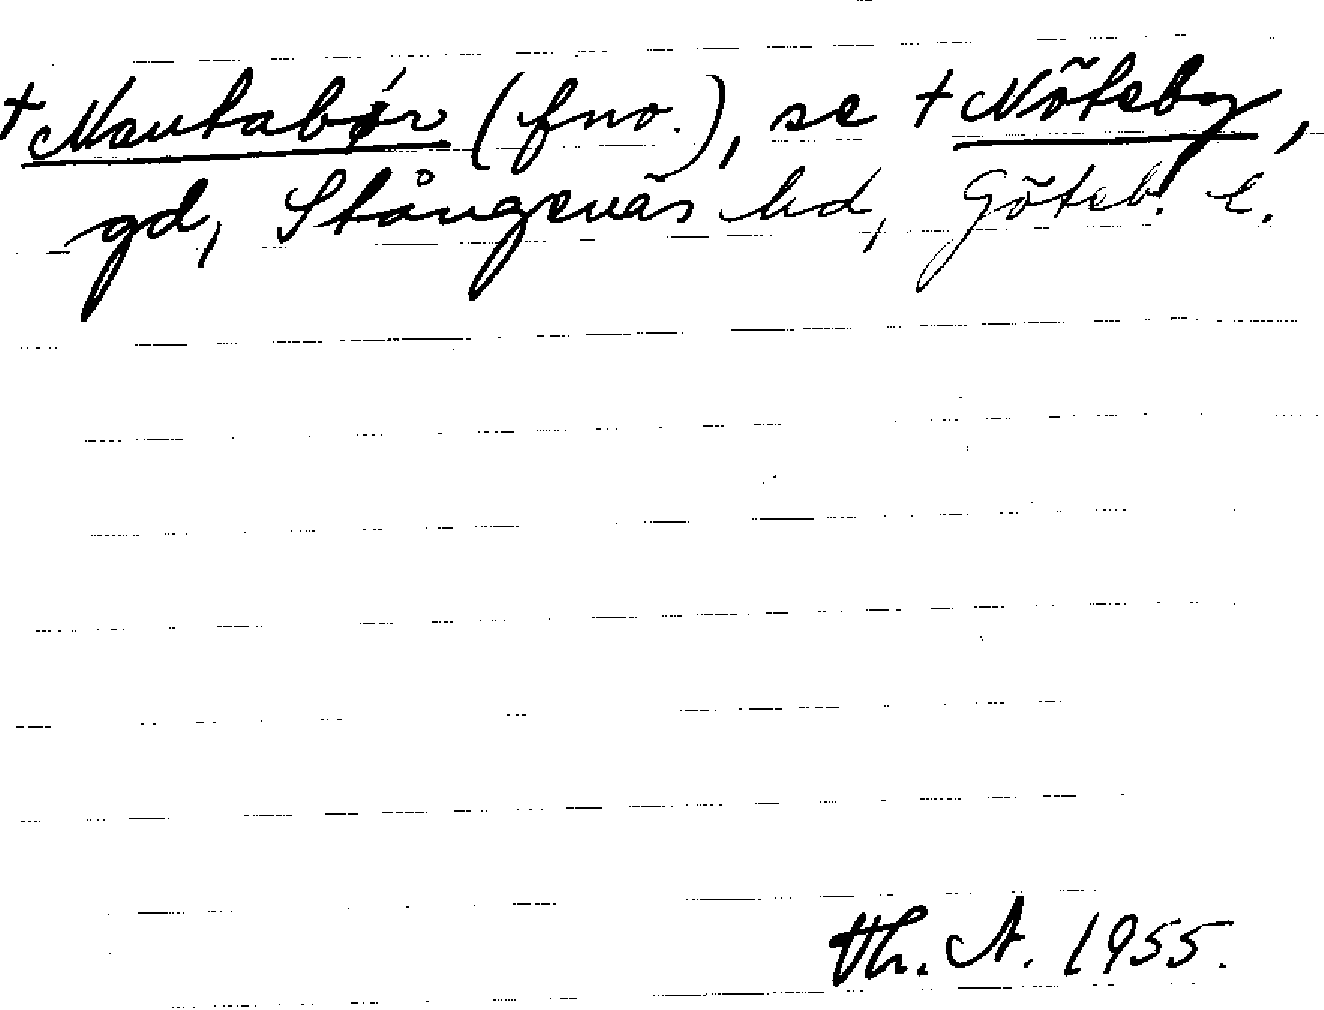 † Nautabǿr (fno.), se † Nöteby,
gd, Stångenäs hd, Göteb. l.
Th. A. 1955.